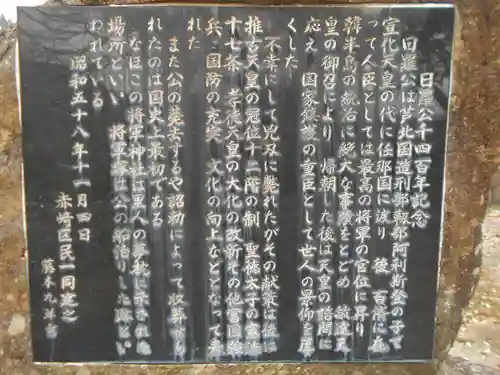 日羅公千四百年記念
日羅公は芦北国造刑部靱部阿利斯登の子で
宣化天皇の代に任那国に渡り 後 百済に在
って人臣としては最高の将軍の官位に昇り
韓半島の統治に絶大な事蹟をとどめ 敏達天
皇の御召により 帰朝した後は天皇の諮問に
応え 国家鎮護の重臣として世人の景仰を厚
くした
不幸にして兇刃に斃れたがその献策は後に
推古天皇の冠位十二階の制 聖徳太子の憲法
十七条 孝徳天皇の大化の改新その他富国強
兵 国防の充実 文化の向上などとなって表
れた
また公の薨去するや詔勅によって収葬せら
れたのは国史上最初である
なほこの将軍神社は里人の夢枕に示された
場所といい 将軍の船泊りした跡とい
われている
昭和五十八年十一月四日
赤崎区民一同建之
藤本九洋書